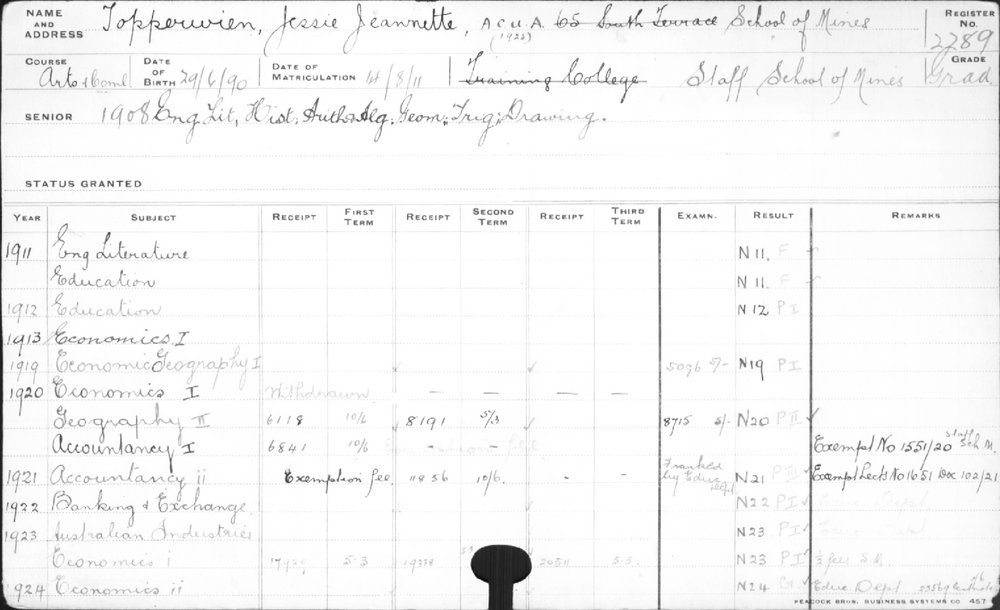 NAME AND ADDRESS Topperwien, Jessie Jeannette, A.C.U.A. 65 South Terrace School of Mines REGISTER No.
(1926) 2289
COURSE Arts & Coml DATE OF BIRTH 29/6/90 DATE OF MATRICULATION 14/8/11 Training College Staff School of Mines GRADE Grad
SENIOR 1908 Eng. Lit, Hist, Arith & Alg, Geom; Trig; Drawing.
STATUS GRANTED
YEAR SUBJECT RECEIPT FIRST TERM RECEIPT SECOND TERM RECEIPT THIRD TERM EXAMN. RESULT REMARKS
1911 Eng Literature N 11. F
Education N 11. F
1912 Education N 12 P I
1913 Economics I
1919 Economic Geography I 5096 5/- N19 P I
1920 Economics I Withdrawn — — —
Geography II 6118 10/6 8191 5/3 8715 5/- N20 P II
Accountancy I 6841 10/6 - - Exempt No 1551/20 Staff Sch M.
1921 Accountancy ii Exemption fee 11856 10/6 - - Franked by Educ Dept N21 P III Exempt Lects No 1651 Doc 102/21
1922 Banking & Exchange N22 P I Educ Dept
1923 Australian Industries N23 P I Educ Dept
Economics i 5.3 20511 5.3. N23 P I ½ fees S.M
1924 Economics ii N24 Educ Dept
PEACOCK BROS. BUSINESS SYSTEMS CO 457